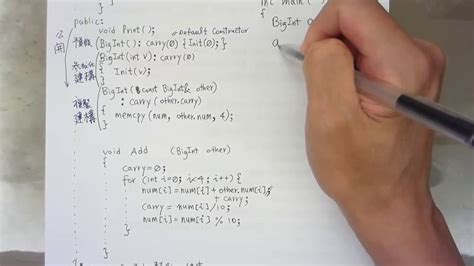 公開
public:
void Print();
預設 BigInt(): carry(0) {Init(0);}
//default Constructor
BigInt(int v): carry(0)
建構 { Init(v); }
BigInt(const BigInt& other)
: carry(other.carry)
複製 {
建構 memcpy(num, other.num, 4);
}
void Add (BigInt other)
{
carry=0;
for (int i=0; i<4; i++) {
num[i]=num[i]+other.num[i]
+ carry;
carry = num[i]/10;
num[i]=num[i] % 10;
}
}
int main(
{
BigInt
a